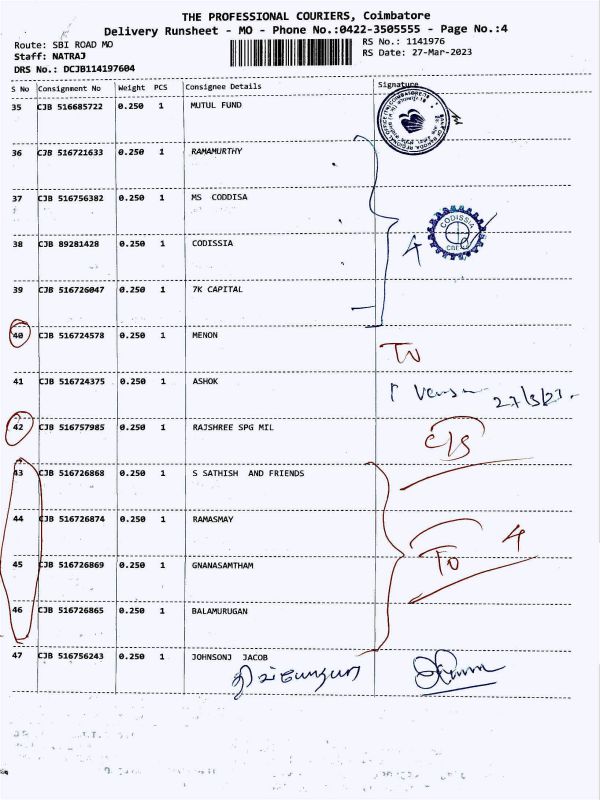 THE PROFESSIONAL COURIERS, Coimbatore
Delivery Runsheet - MO - Phone No.:0422-3505555 - Page No.:4
Route: SBI ROAD MO
RS No.: 1141976
Staff: NATRAJ
RS Date: 27-Mar-2023
DRS No.: DCJB114197604
S No Consignment No Weight PCS Consignee Details Signature
35 CJB 516685722 0.250 1 MUTUL FUND
36 CJB 516721633 0.250 1 RAMAMURTHY
37 CJB 516756382 0.250 1 MS CODDISA
CODISSIA
38 CJB 89281428 0.250 1 CODISSIA 4
39 CJB 516726047 0.250 1 7K CAPITAL
40 CJB 516724578 0.250 1 MENON
41 CJB 516724375 0.250 1 ASHOK
27/3/23
42 CJB 516757985 0.250 1 RAJSHREE SPG MIL
43 CJB 516726868 0.250 1 S SATHISH AND FRIENDS
44 CJB 516726874 0.250 1 RAMASMAY 4
45 CJB 516726869 0.250 1 GNANASAMTHAM
46 CJB 516726865 0.250 1 BALAMURUGAN
47 CJB 516756243 0.250 1 JOHNSONJ JACOB